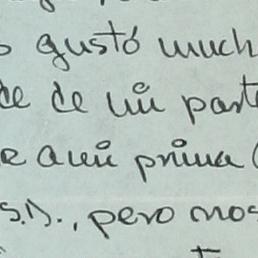 o gustó much
ce de mi parte
e a mi prima (
s.D., pero nos